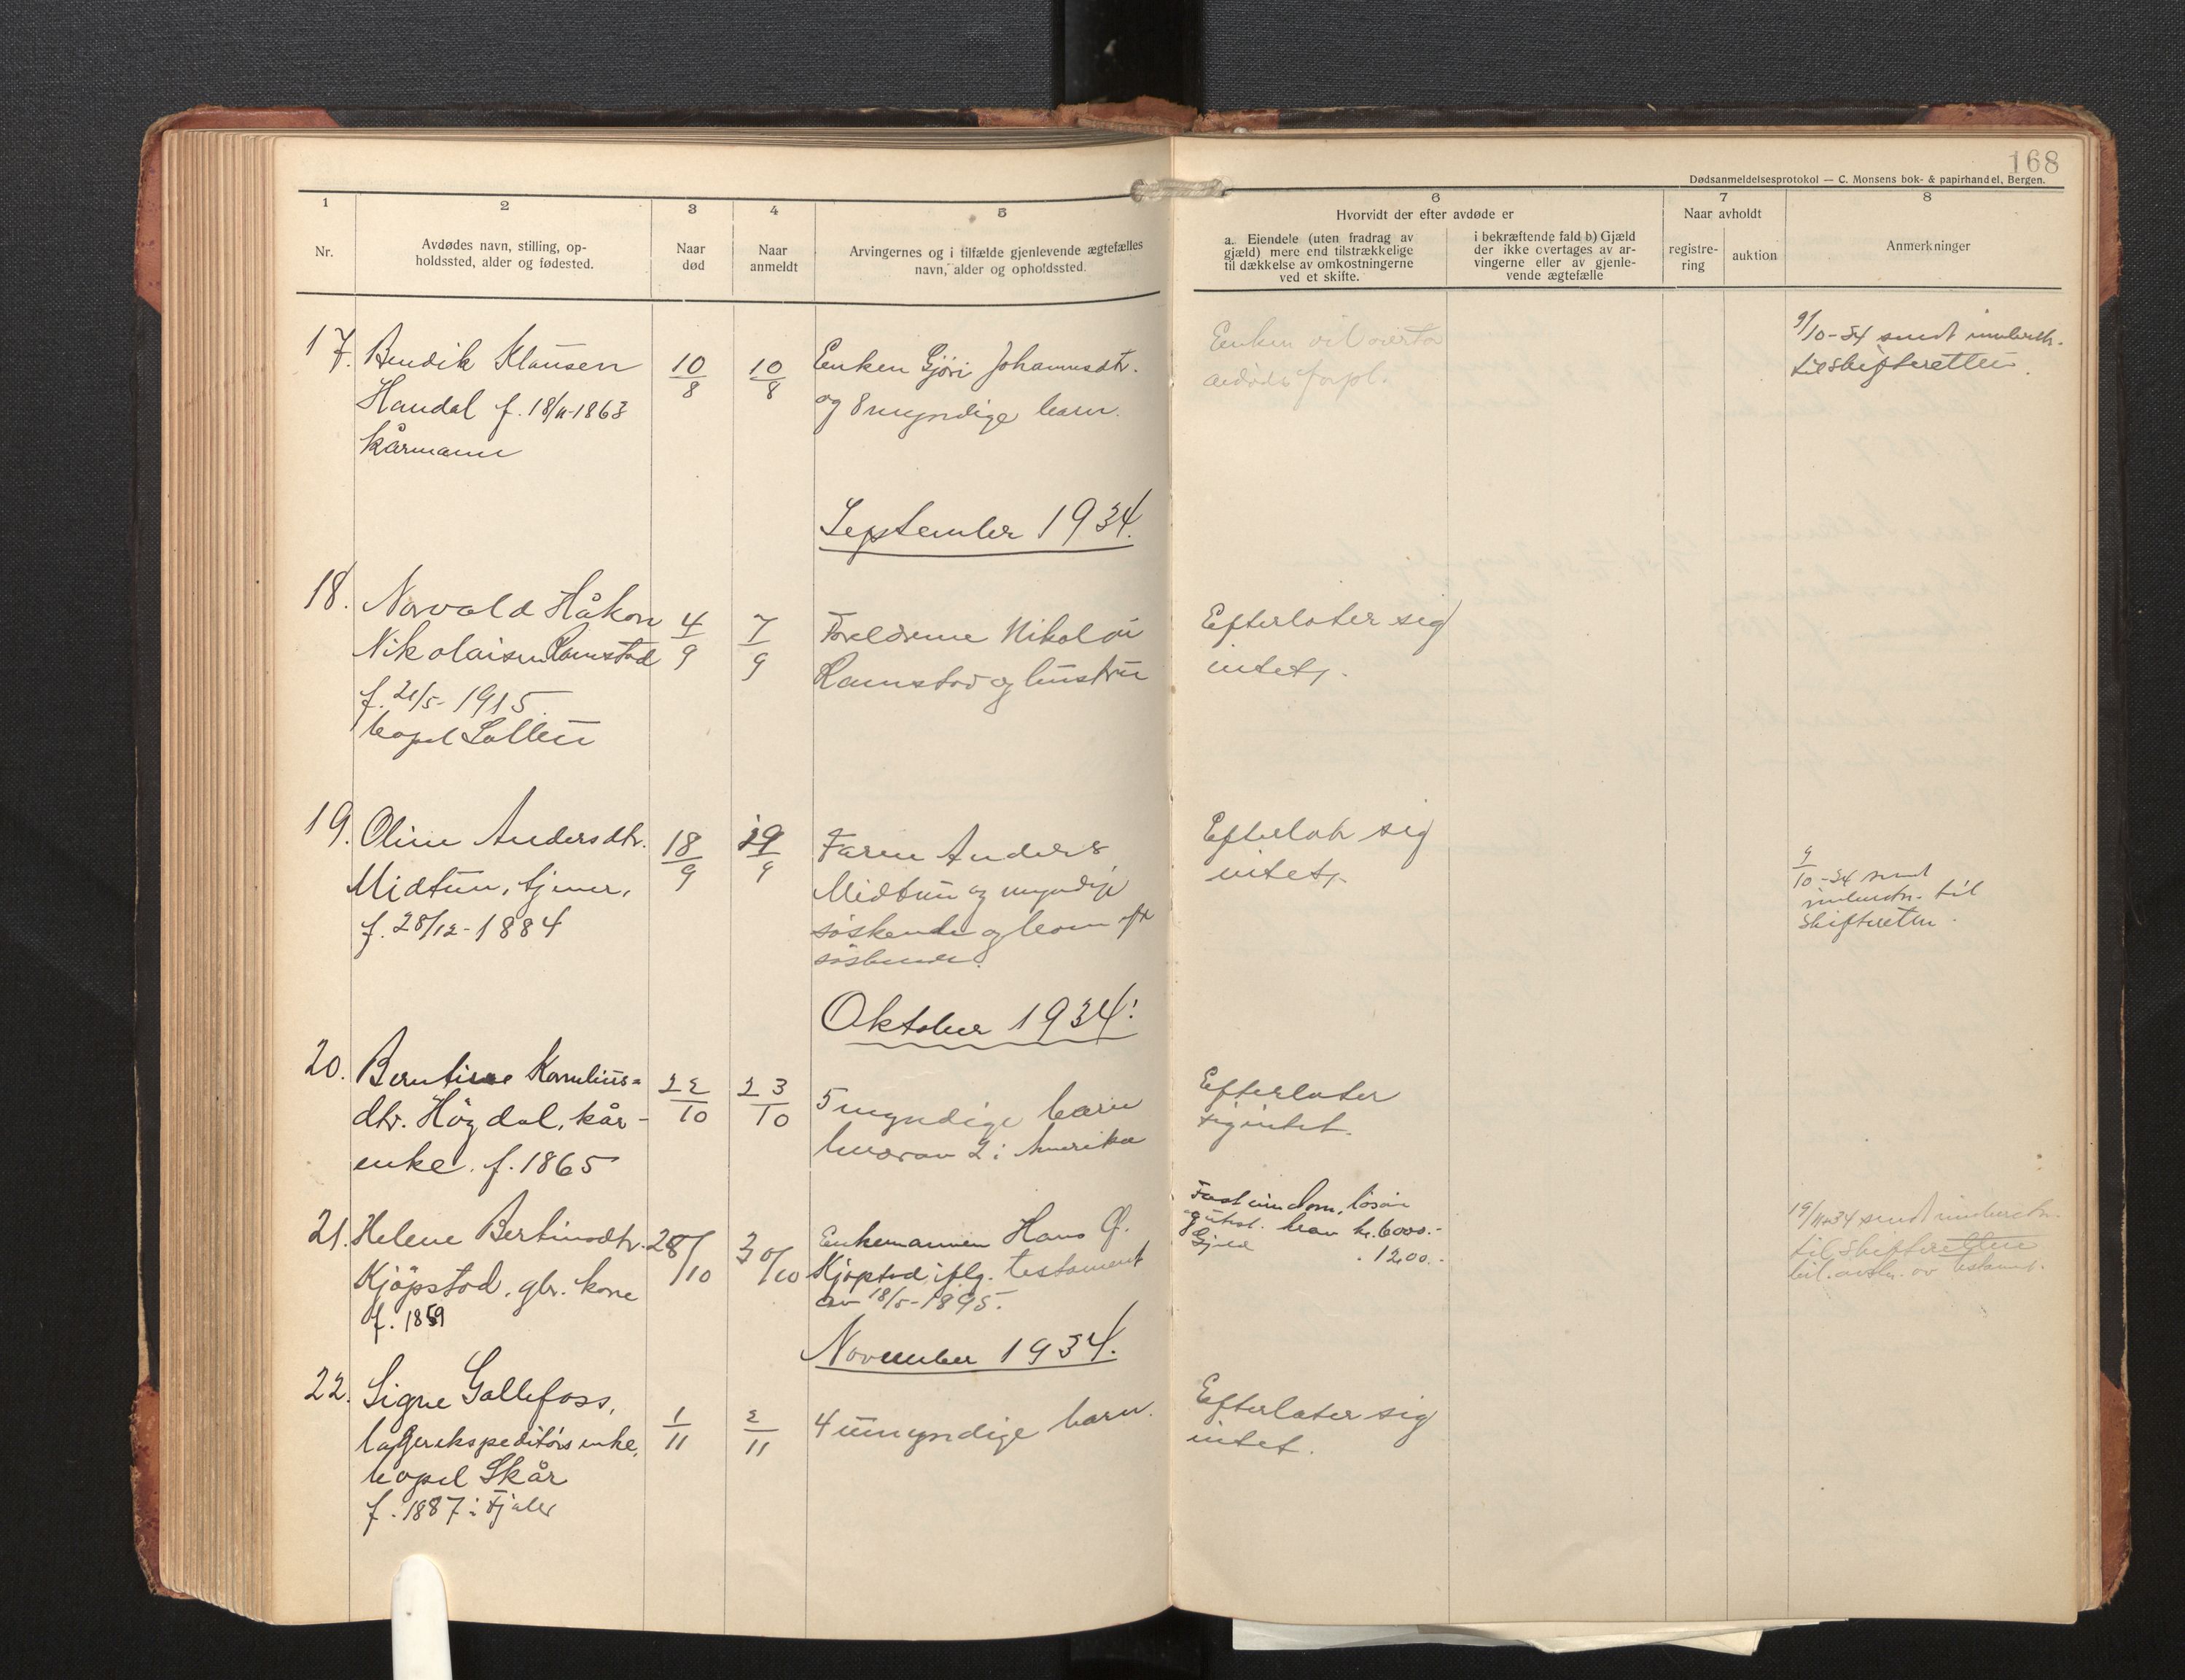 168
Dødsanmeldelsesprotokol — C. Monsens bok- & papirhandel, Bergen.
1 2 3 4 5 6 7 8
Nr.
Avdødes navn, stilling, op-
holdssted, alder og fødested.
Naar
død
Naar
anmeldt
Arvingernes og i tilfælde gjenlevende ægtefælles
navn, alder og opholdssted.
Hvorvidt der efter avdøde er
a. Eiendele (uten fradrag av
gjæld) mere end tilstrækkelige
til dækkelse av omkostningerne
ved et skifte.
i bekræftende fald b) Gjæld
der ikke overtages av ar-
vingerne eller av gjenle-
vende ægtefælle
Naar avholdt
registre-
ring
auktion
Anmerkninger
17. Bendik Klausen
Handal f. 18/11-1863
kårmann
10/8
10/8
Enken Gjöri Johannesdtr.
og 8 myndige barn.
Enken vil overta
avdødes forpl.
9/10-34 sendt innberetn.
til skifteretten.
September 1934.
18. Norvald Håkon
Nikolaisen Ramstad
f. 21/5-1915
4/9
7/9
Foreldrene Nikolai
Ramstad og hustru
Efterlater sig
intet.
19. Oline Andersdtr.
Midtun, tjener,
f. 28/12-1884
18/9
19/9
Faren Anders
Midtun og myndige
søskende og barn eft
søskende.
Efterlot sig
intet.
9/10-34 sendt
innberetn. til
skifteretten.
Oktober 1934:
20. Berntine Kornelius-
dtr. Högdal, kår-
enke. f. 1865
22/10
23/10
5 myndige barn
hvorav 2 i Amerika
Efterlater
sig intet.
21. Helene Bertinsdtr.
Kjöpstad, gbr. kone
f. 1859
28/10
30/10
Enkemannen Hans G.
Kjøpstad, iflg. testament
av 18/5-1895.
Fast eiendom, løsøre
og utest. krav kr. 6000.-
Gjeld " 1200.-
19/11-34 sendt innberetn.
til skifteretten
November 1934.
22. Signe Gallefoss,
lagerekspeditørs enke,
bopel Skår
f. 1887 i Fjaler
1/11
2/11
4 umyndige barn.
Efterlater sig
intet.